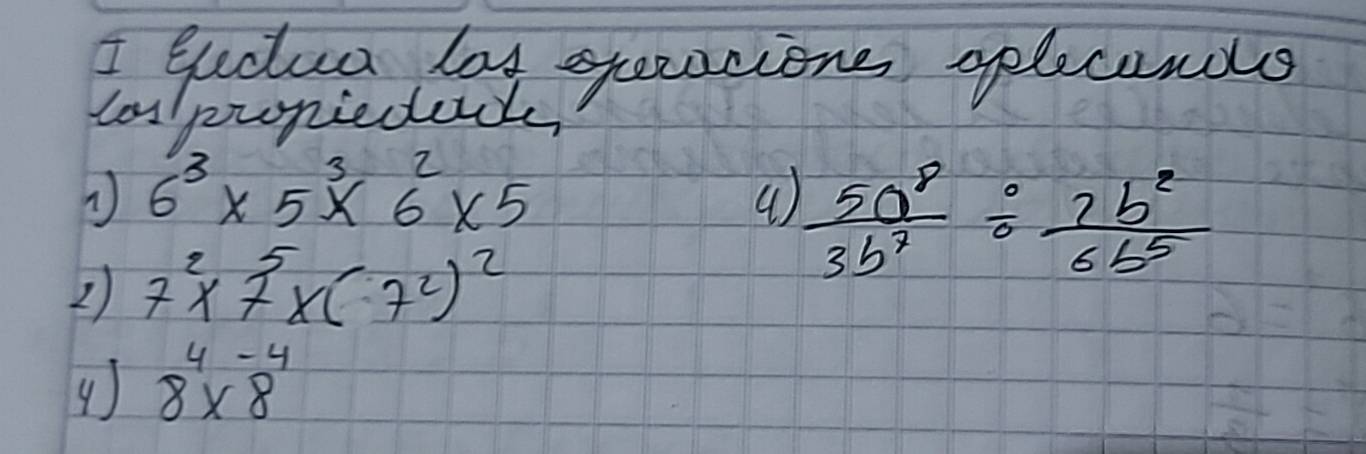 I Efectua las operaciones aplicando
las propiedades
1) 6³ x 5³ x 6² x 5
2) 7² x 7⁵ x (7²)²
4) 8⁴ x 8⁻⁴
4) 5a⁸/3b⁷ ÷ 2b²/6b⁵